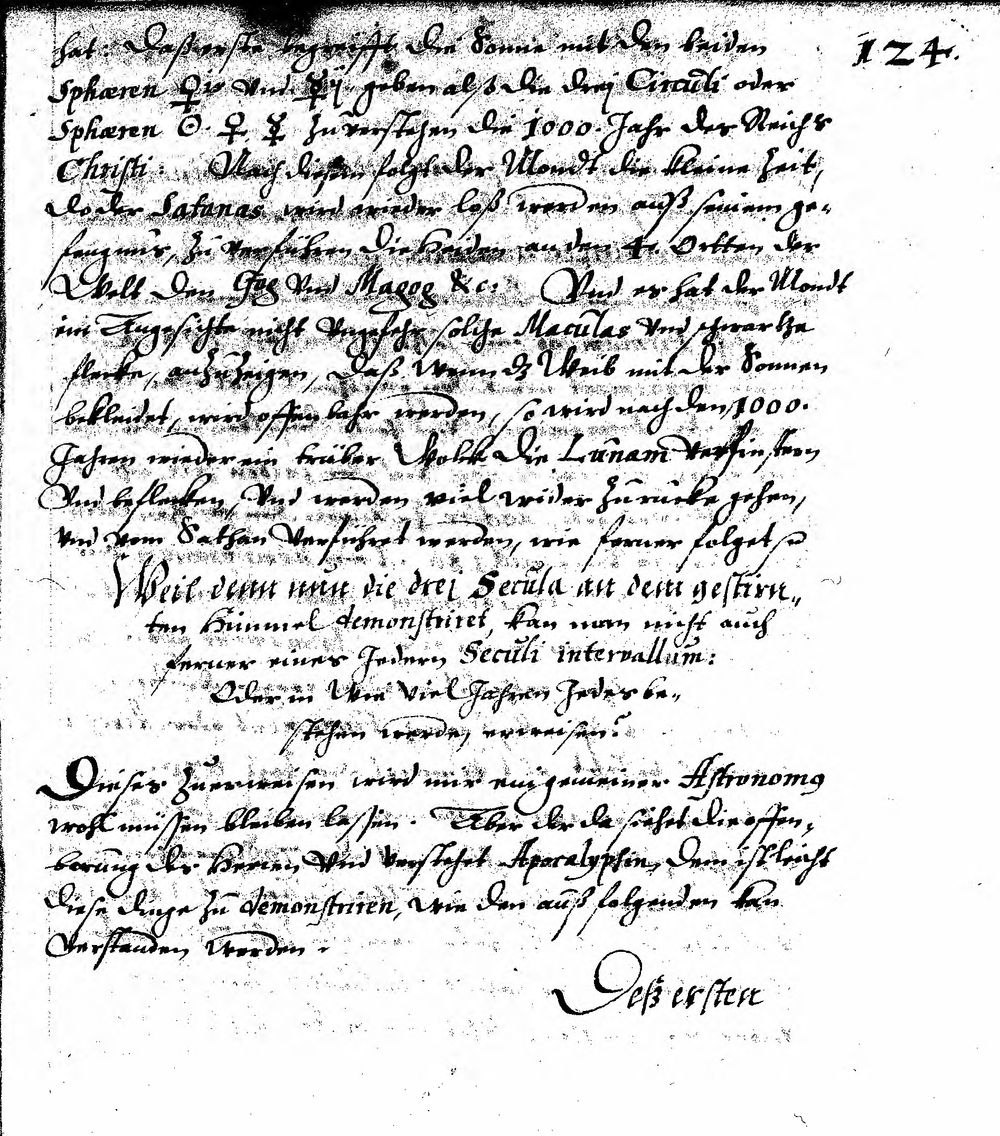 124.
hat: Daß erste begreifft die Sonne mit den beiden
Sphæren ♀ris Vnd ☿ij. geben also die drej Circuli oder
Sphæren ☉. ♀. ☿ zuverstehen die 1000. Jahr des Reichs
Christi: Nach diesem folgt der Mondt die kleine Zeit,
do der Satanas wird wieder loß werden auß seinem ge-
fengnüs, zu verführen die Heiden an den 4. Ortten der
Welt den Gog Vnd Magog &c: Vnd es hat der Mondt
im Angesichte nicht Vngefehr solche Maculas Vnd schwartze
flecke, anzuzeigen, Daß wenn dz Weib mit der Sonnen
bekleidet, wird offenbahr werden, so wird nach den 1000.
Jahren wieder ein trüber Wolck die Lunam verfinstern
Vnd beflecken, Vnd werden viel wider zurucke gehen,
vnd vom Sathan Verführet werden, wie ferner folget
Weil denn nun die drej Secula an dem gestirn-
ten Himmel demonstriret, kan man nicht auch
ferner eines Jedern Seculi intervallum:
Oder in Wie Viel Jahren Jedes be-
stehen werde, erweisen?
Dieses Zuerweisen wird mir ein gemeiner Astronomus
wohl müssen bleiben lassen. Aber der da siehet die offen-
barung des Herren Vnd verstehet Apocalypsin, dem ist leicht
diese dinge zu demonstriren, wie den auß folgenden kan
Verstanden werden.
Deß ersten